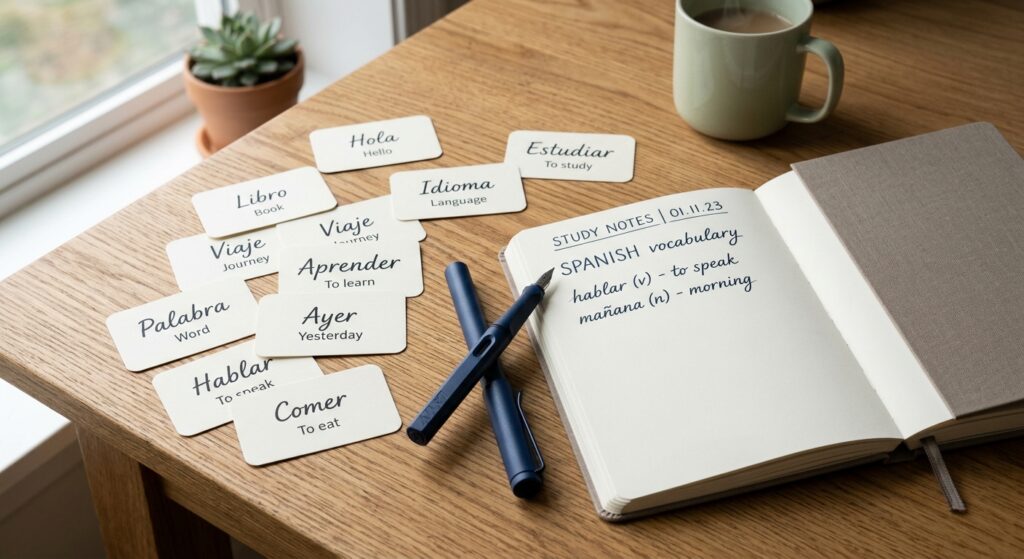 Hola
Hello
Estudiar
To study
Idioma
Language
Libro
Book
Viaje
Journey
Viaje
Journey
Aprender
To learn
Palabra
Word
Ayer
Yesterday
Hablar
To speak
Comer
To eat
STUDY NOTES | 01.11.23
SPANISH vocabulary
hablar (v) - to speak
mañana (n) - morning